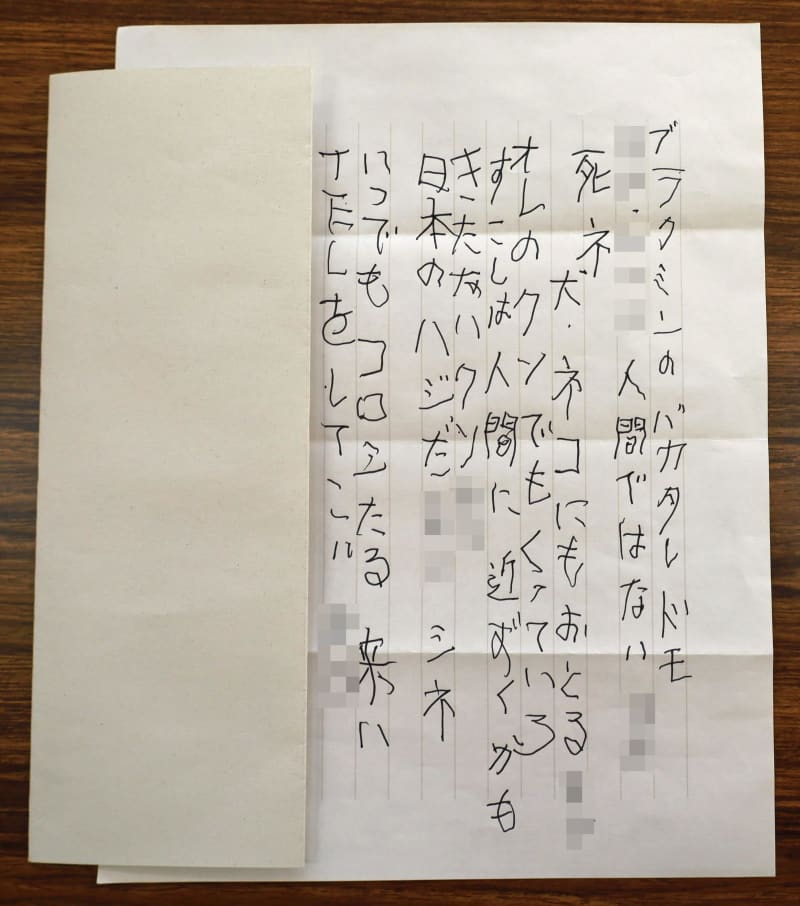 ブラクミンのバカタレドモ
人間ではない
死ネ
犬・ネコにもおとる
オレのクソでもくっていろ
すこしは人間に近ずくがも
きたないクソ
日本のハジだ シネ
いつでもコロシたる 来い
をしてこい